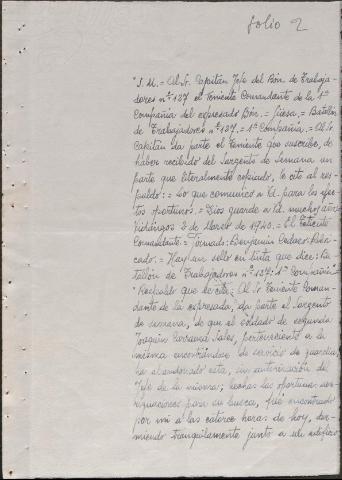 folio 2
"S. M. = Al Sr. Capitán Jefe del Bón. de Trabaja-
dores nº 127 el Teniente Comandante de la 1ª
Compañía del expresado Bón. = = Batallón
de Trabajadores nº 127. = 1ª Compañía. = Al Sr.
Capitán da parte el Teniente que suscribe, de
haber recibido del Sargento de Semana un
parte que literalmente copiado, le cito al res-
paldo: = Lo que comunico a Vd. para los efec-
tos oportunos. = Dios guarde a Vd. muchos años
Vidángoz 2 de de 1940. = El Teniente
Comandante. = Firmado: Benjamín
cado. = Hay un sello en tinta que dice: Ba-
tallón de Trabajadores nº 127. 1ª Compañía."
"Respaldo que se cita: Al Sr. Teniente Coman-
dante de la expresada, da parte el Sargento
de semana, de que el soldado de segunda
Joaquín, perteneciente a la
misma encontrándose de servicio de guardia,
ha abandonado esta, sin autorización del
Jefe de la misma; hechas las oportunas ave-
riguaciones para su busca, fué encontrado
por mí a las catorce horas de hoy, dur-
miendo tranquilamente junto a un edificio